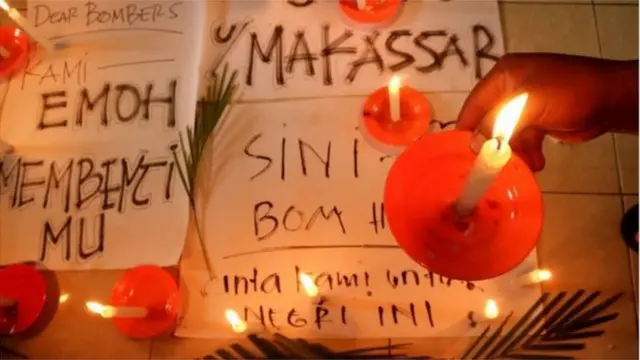 DEAR BOMBERS
KAMI
EMOH
MEMBENCI
MU
U/ MAKASSAR
SINI
BOM
inta kami
NEGRI INI